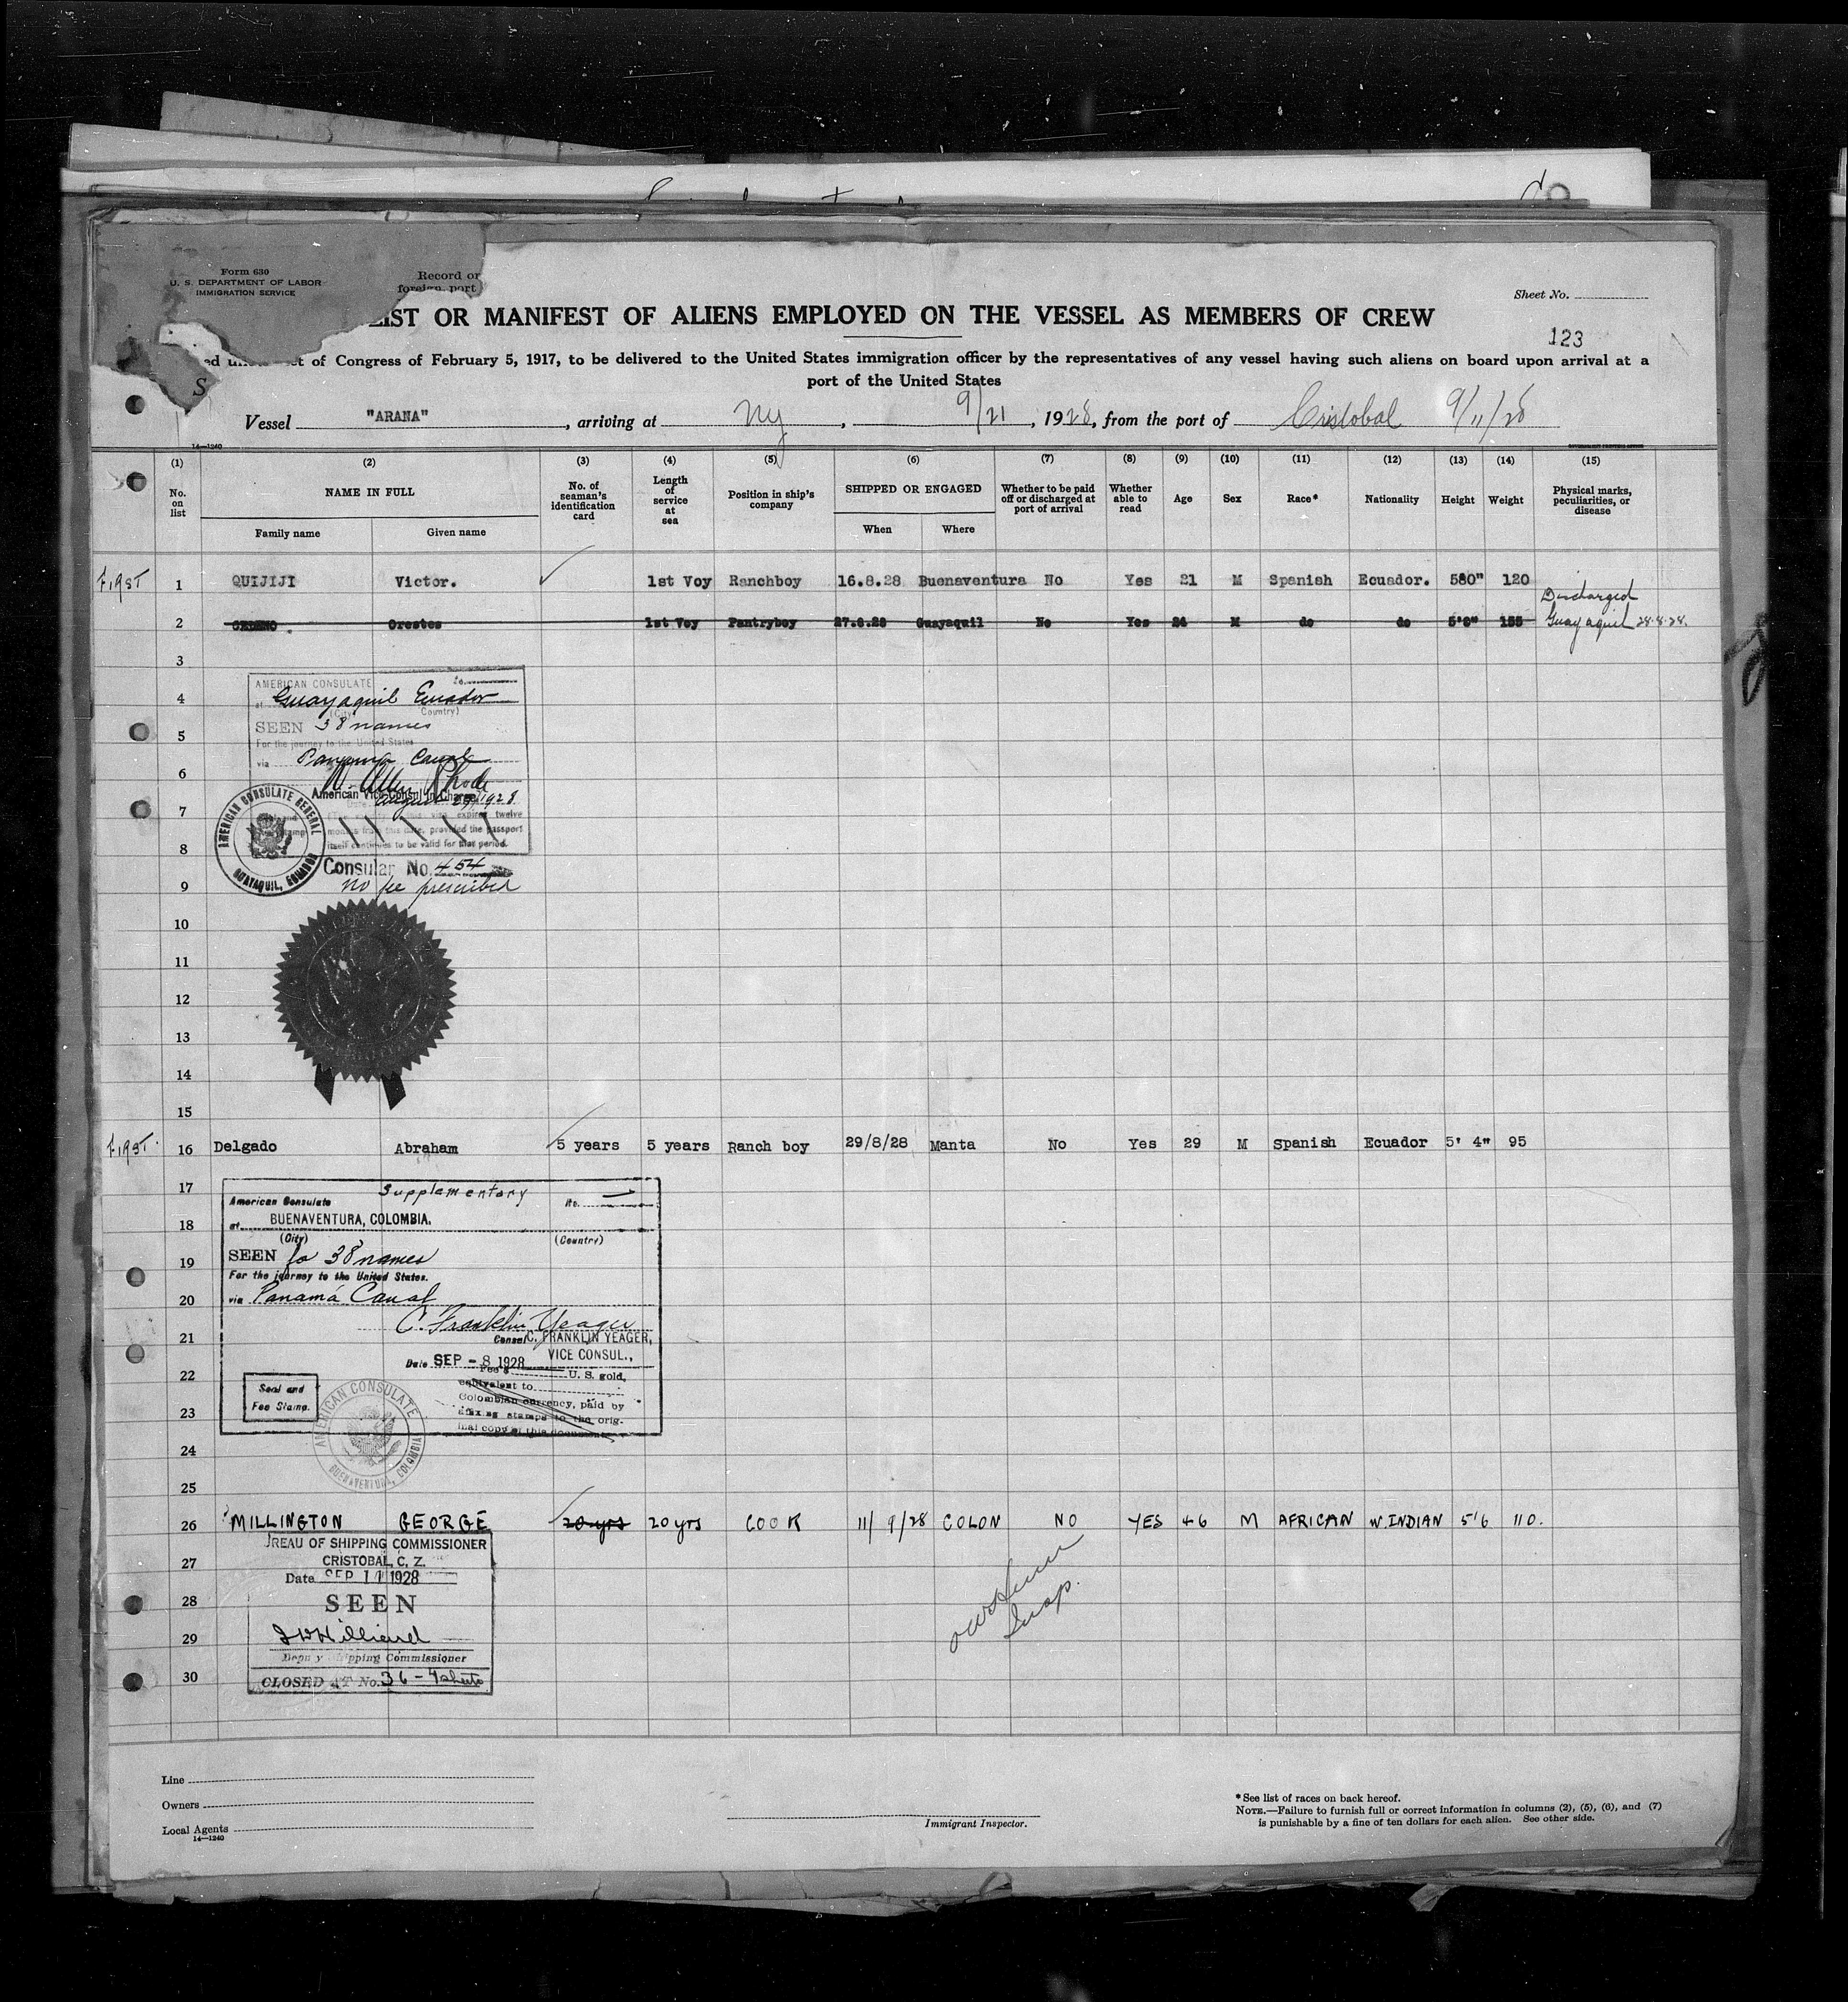 Form 630
U. S. DEPARTMENT OF LABOR
IMMIGRATION SERVICE
Record or
foreign port
Sheet No.
LIST OR MANIFEST OF ALIENS EMPLOYED ON THE VESSEL AS MEMBERS OF CREW
123
of Congress of February 5, 1917, to be delivered to the United States immigration officer by the representatives of any vessel having such aliens on board upon arrival at a
port of the United States
S
Vessel "ARANA", arriving at NY, 9/21, 1928, from the port of Cristobal 9/11/28
14—1240
(1) (2) (3) (4) (5) (6) (7) (8) (9) (10) (11) (12) (13) (14) (15)
No. on list
NAME IN FULL
Family name
Given name
No. of seaman's identification card
Length of service at sea
Position in ship's company
SHIPPED OR ENGAGED
When
Where
Whether to be paid off or discharged at port of arrival
Whether able to read
Age
Sex
Race*
Nationality
Height
Weight
Physical marks, peculiarities, or disease
First 1 QUIJIJI Victor. 1st Voy Ranchboy 16.8.28 Buenaventura No Yes 21 M Spanish Ecuador. 580" 120
Discharged
2 CEDENO Orestes 1st Voy Pantryboy 27.8.28 Guayaquil No Yes 24 M do do 155 Guayaquil 28.8.28.
3
4
5
6
7
8
9
AMERICAN CONSULATE
at Guayaquil Ecuador
(City) Country)
SEEN 38 names
For the journey to the United States
via Panama Canal
American Vice Consul in Charge
August 29, 1928
expires twelve
months from this date, provided the passport
itself continues to be valid for that period.
AMERICAN CONSULATE GENERAL
GUAYAQUIL, ECUADOR
Consular No. 454
no fee prescribed
10
11
12
13
14
15
First. 16 Delgado Abraham 5 years 5 years Ranch boy 29/8/28 Manta No Yes 29 M Spanish Ecuador 5' 4" 95
17
18
19
20
21
22
23
24
25
Supplementary
American Consulate No.
at BUENAVENTURA, COLOMBIA.
(City) (Country)
SEEN for 38 names
For the journey to the United States.
via Panamá Canal
C. Franklin Yeager
Consul C. FRANKLIN YEAGER,
VICE CONSUL.,
Date SEP - 8 1928
Fee $ U. S. gold,
equivalent to
Colombian currency, paid by
affixing stamps to the orig-
inal copy of this document
Seal and
Fee Stamp.
AMERICAN CONSULATE
BUENAVENTURA, COLOMBIA
26 MILLINGTON GEORGE 20 yrs 20 yrs COOK 11/9/28 COLON NO YES 46 M AFRICAN W. INDIAN 5'6 110.
27
28
29
30
UREAU OF SHIPPING COMMISSIONER
CRISTOBAL, C. Z.
Date SEP 11 1928
SEEN
Deputy Shipping Commissioner
CLOSED AT No. 36 - 4 sheets
Insp.
Line
Owners
Local Agents
14—1240
Immigrant Inspector.
*See list of races on back hereof.
NOTE.—Failure to furnish full or correct information in columns (2), (5), (6), and (7)
is punishable by a fine of ten dollars for each alien. See other side.